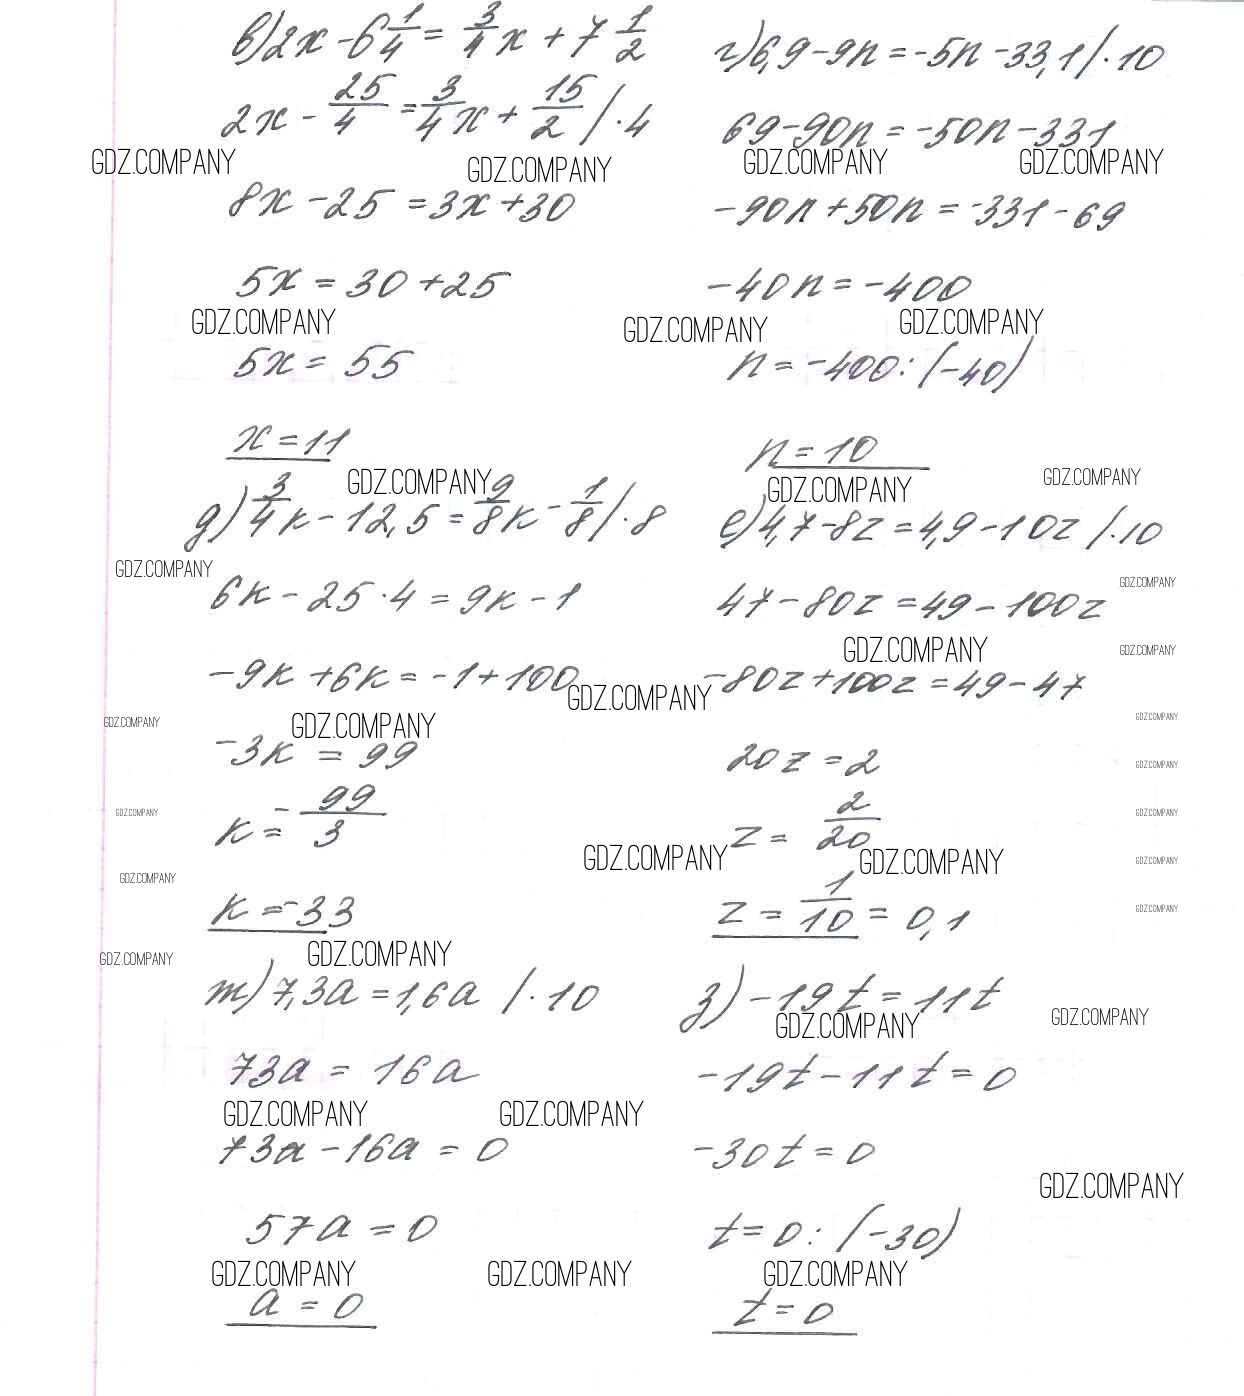 в) 2x - 6 1/4 = 3/4 x + 7 1/2
2x - 25/4 = 3/4 x + 15/2 /·4
GDZ.COMPANY GDZ.COMPANY
8x - 25 = 3x + 30
5x = 30 + 25
GDZ.COMPANY
5x = 55
x = 11
г) 6,9 - 9n = -5n - 33,1 /·10
69 - 90n = -50n - 331
GDZ.COMPANY GDZ.COMPANY
-90n + 50n = -331 - 69
-40n = -400
GDZ.COMPANY GDZ.COMPANY
n = -400 : (-40)
n = 10
GDZ.COMPANY GDZ.COMPANY GDZ.COMPANY
д) 3/4 к - 12,5 = 9/8 к - 1/8 /·8
GDZ.COMPANY
6к - 25·4 = 9к - 1
-9к + 6к = -1 + 100
GDZ.COMPANY GDZ.COMPANY GDZ.COMPANY
-3к = 99
к = - 99/3
GDZ.COMPANY
GDZ.COMPANY
к = -33
GDZ.COMPANY GDZ.COMPANY
е) 4,7 - 8z = 4,9 - 10z /·10
GDZ.COMPANY
47 - 80z = 49 - 100z
GDZ.COMPANY GDZ.COMPANY
-80z + 100z = 49 - 47
GDZ.COMPANY
20z = 2
GDZ.COMPANY
z = 2/20
GDZ.COMPANY
GDZ.COMPANY GDZ.COMPANY GDZ.COMPANY
z = 1/10 = 0,1
GDZ.COMPANY
т) 7,3a = 1,6a /·10
73a = 16a
GDZ.COMPANY GDZ.COMPANY
73a - 16a = 0
57a = 0
GDZ.COMPANY GDZ.COMPANY
a = 0
з) -19t = 11t
GDZ.COMPANY GDZ.COMPANY
-19t - 11t = 0
-30t = 0
GDZ.COMPANY
t = 0 : (-30)
GDZ.COMPANY
t = 0